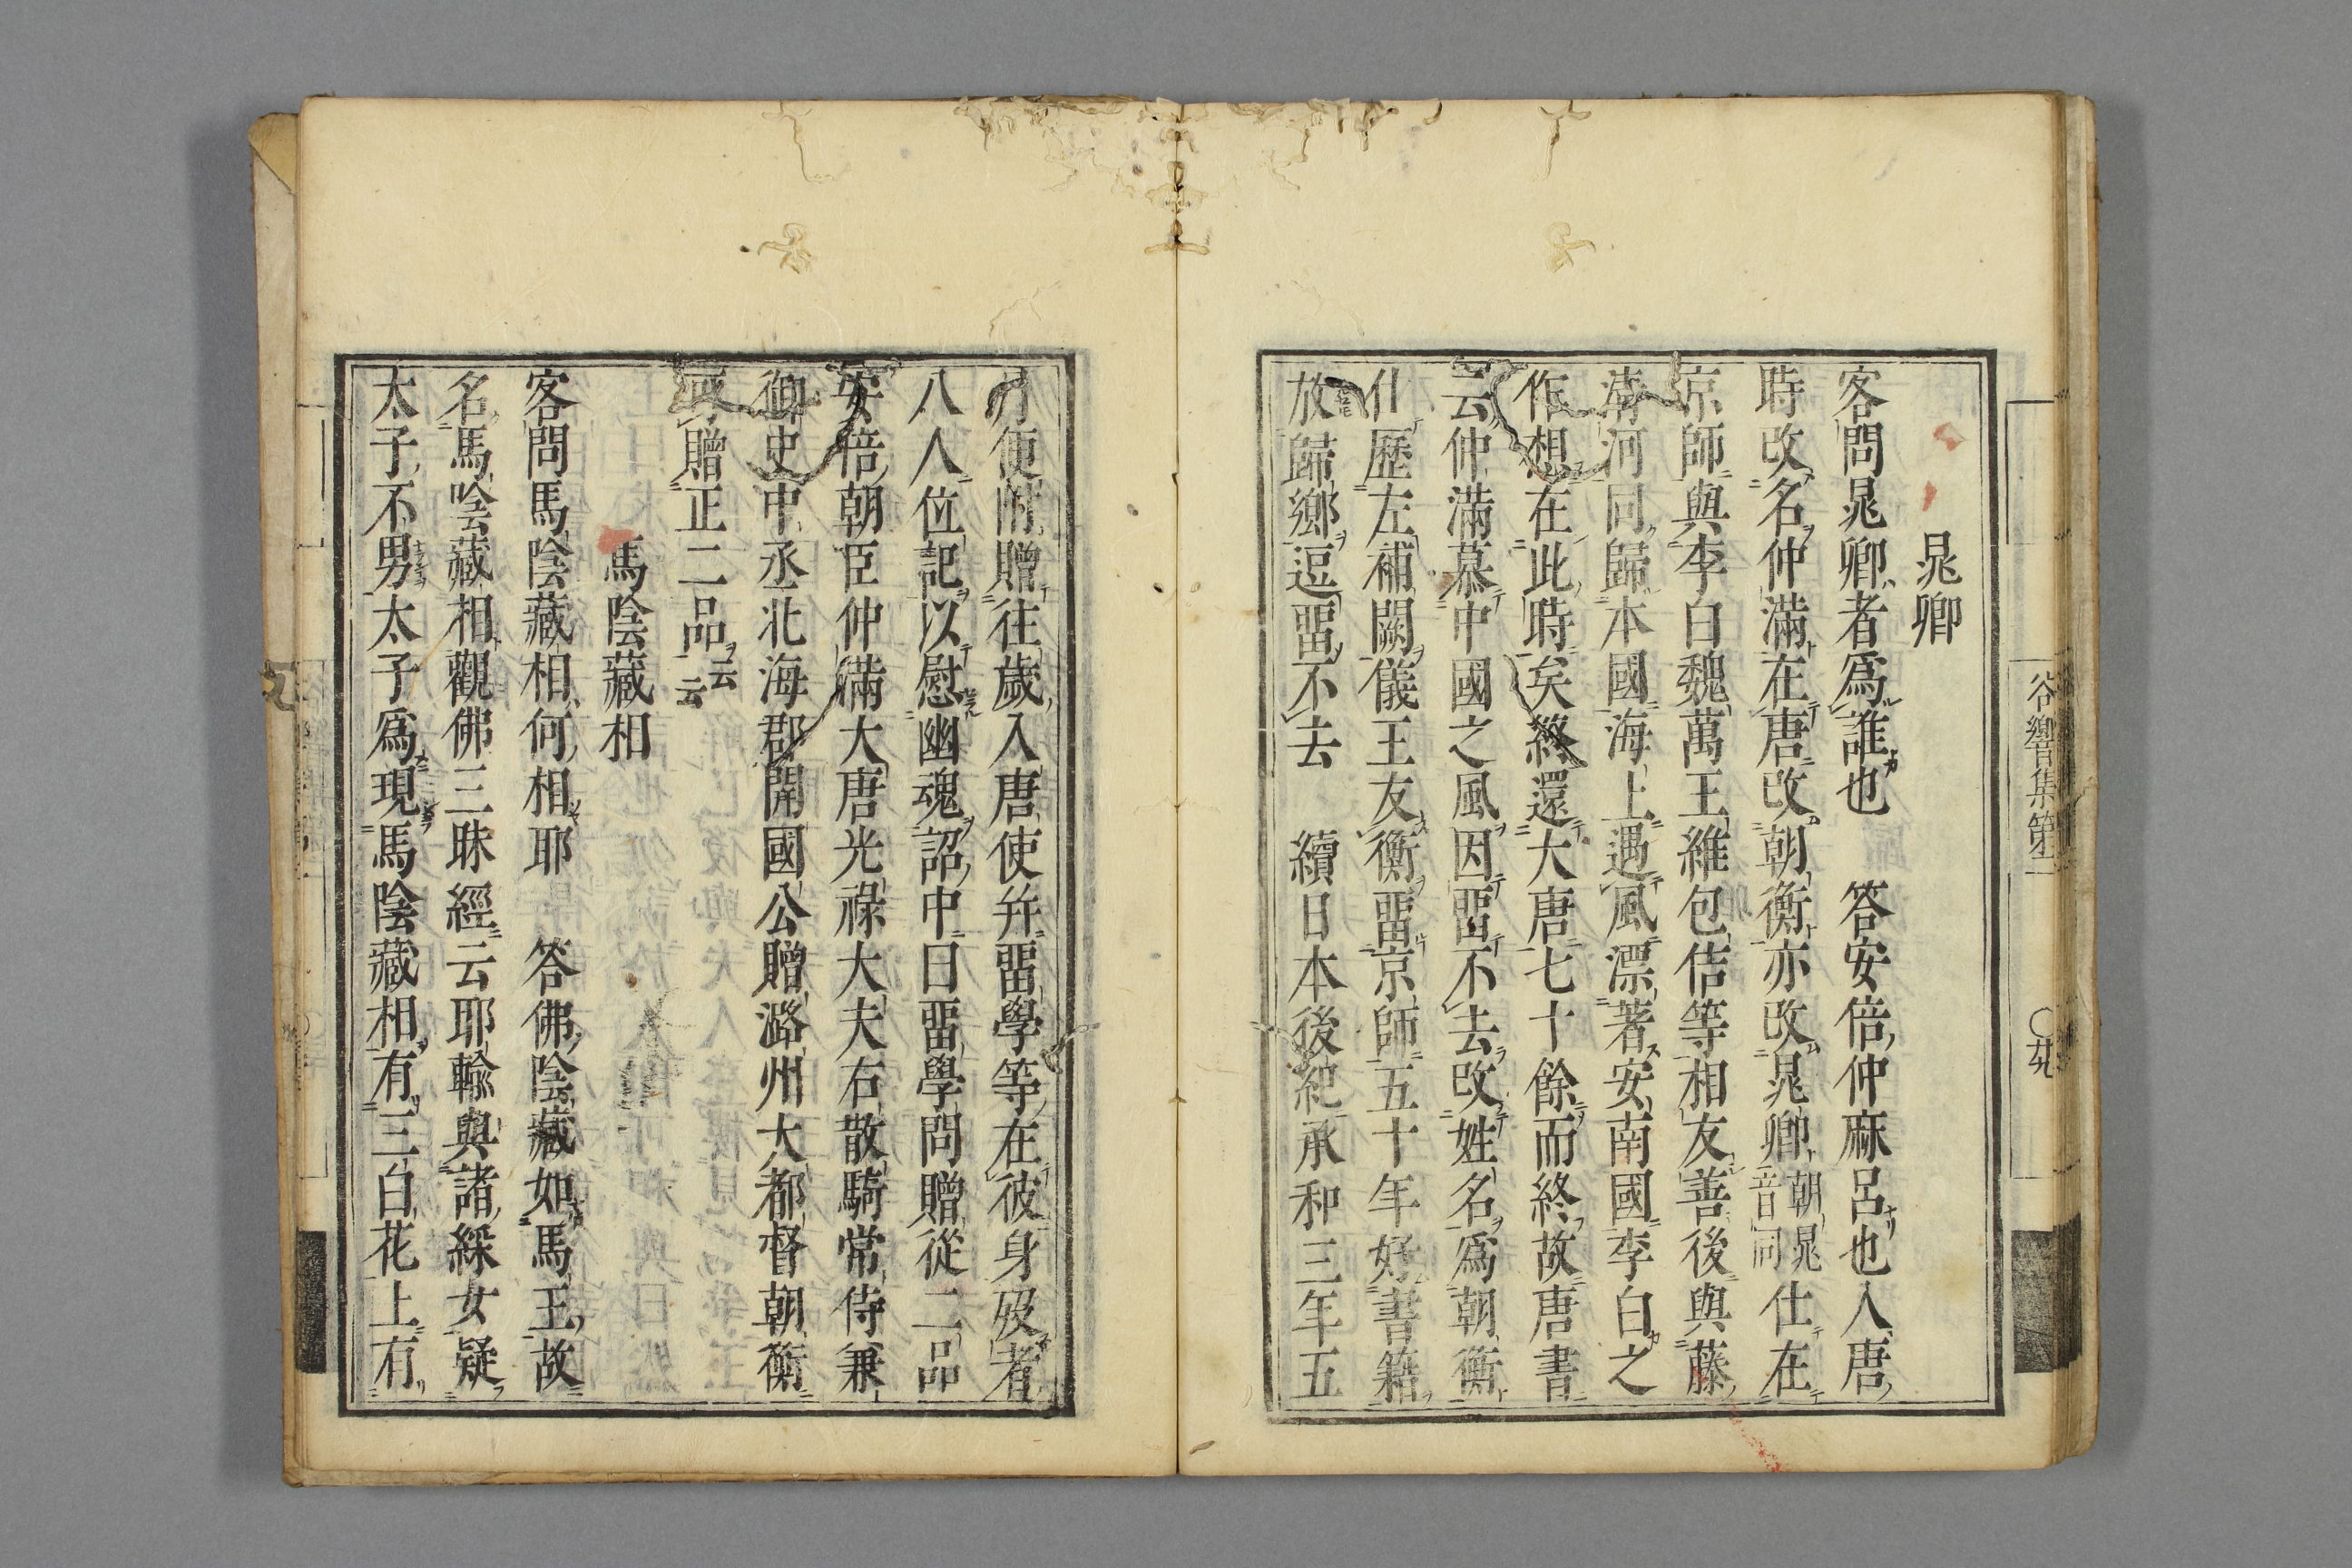 晁卿
客問晁卿者爲誰也　答安倍仲麻呂也入唐
時改名仲滿在唐改朝衡亦改晁卿朝晁音同仕在
京師與李白魏萬王維包佶等相友善後與藤
清河同歸本國海上遇風漂著安南國李白之
作想在此時矣終還大唐七十餘而終故唐書
云仲滿慕中國之風因畱不去改姓名爲朝衡
仕歷左補闕儀王友衡畱京師五十年好書籍
放歸鄉逗畱不去　續日本後紀承和三年五
月使附贈往歲入唐使幷畱學等在彼身歿者
八人位記以慰幽魂詔中曰畱學問贈從二品
安倍朝臣仲滿大唐光祿大夫右散騎常侍兼
御史中丞北海郡開國公贈潞州大都督朝衡
可贈正二品云云
馬陰藏相
客問馬陰藏相何相耶　答佛陰藏如馬王故
名馬陰藏相觀佛三昧經云耶輸與諸綵女疑
太子不男太子爲現馬陰藏相有三白花上有
谷響集第二
〇九